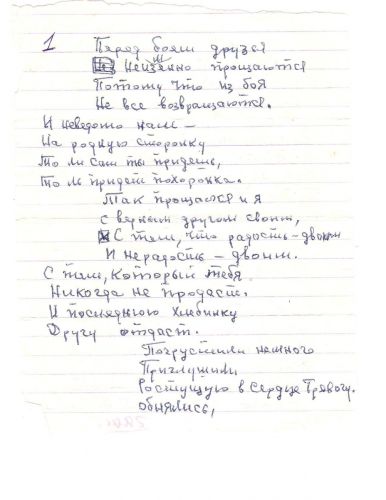 1
Перед боем друзья
Неизменно прощаются
Потому что из боя
Не все возвращаются.
И неведомо нам –
На родную сторонку
То ли сам ты придешь,
То ль придет похоронка.
Так прощался и я
С верным другом своим,
С тем, что радость – двоим
И нерадость – двоим.
С тем, который тебя
Никогда не продаст.
И последнюю хлебинку
Другу отдаст.
Погрустили немного
Приглушили
Ростущую в сердце тревогу.
обнялись,